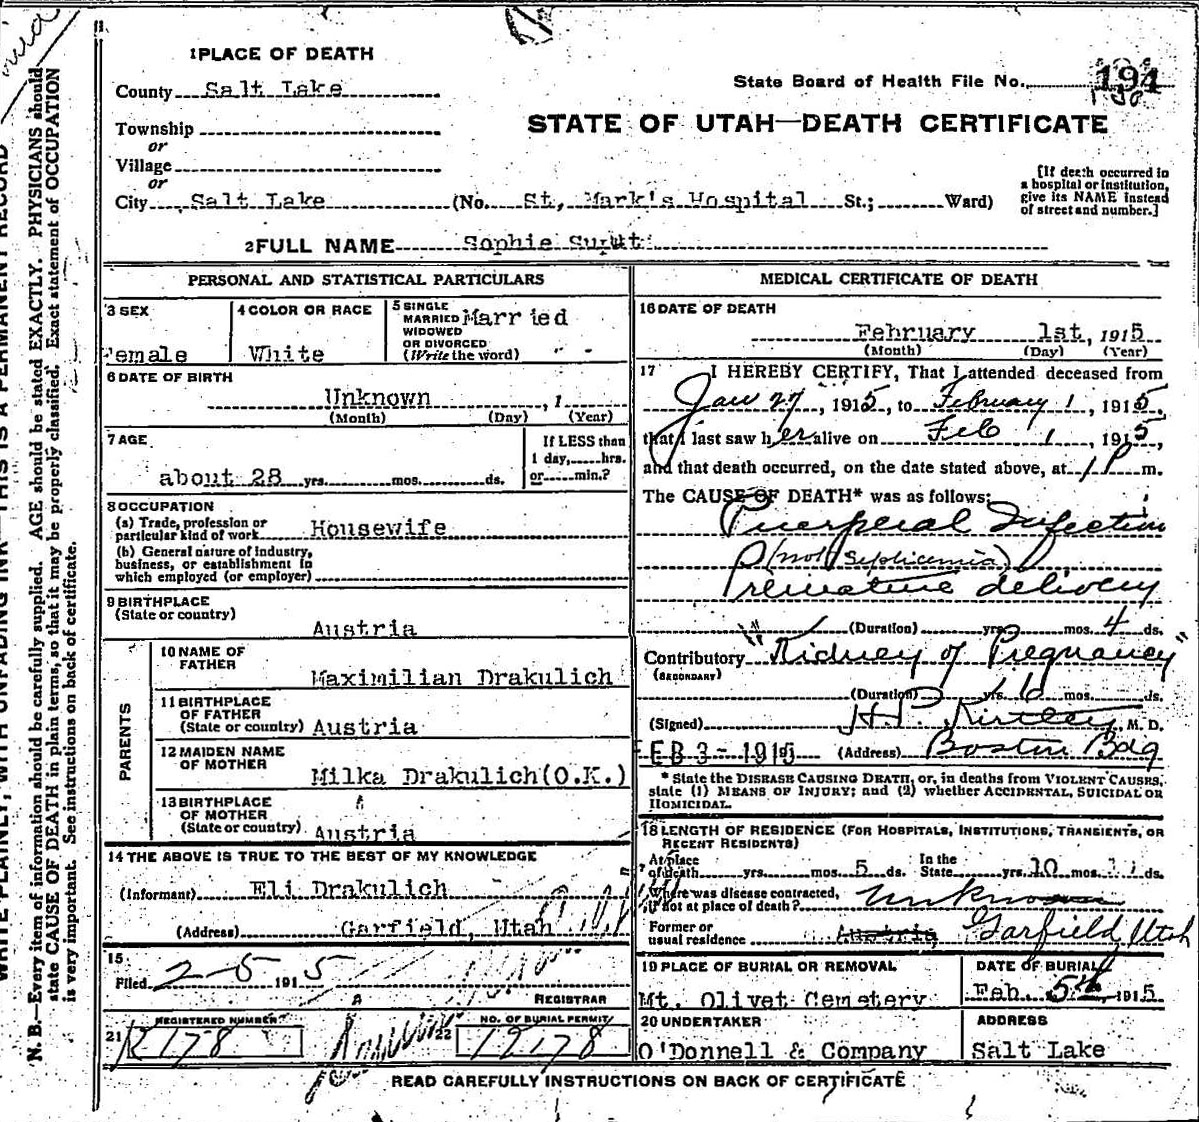 1 PLACE OF DEATH
County Salt Lake
Township
or
Village
or
City Salt Lake (No. St, Mark's Hospital St.; Ward)
State Board of Health File No. 194
STATE OF UTAH—DEATH CERTIFICATE
[If death occurred in
a hospital or institution,
give its NAME instead
of street and number.]
2 FULL NAME Sophie
PERSONAL AND STATISTICAL PARTICULARS
3 SEX
Female
4 COLOR OR RACE
White
5 SINGLE
MARRIED
WIDOWED
OR DIVORCED
(Write the word)
Married
6 DATE OF BIRTH
Unknown , 1
(Month) (Day) (Year)
7 AGE
about 28 yrs. mos. ds.
If LESS than
1 day, hrs.
or min.?
8 OCCUPATION
(a) Trade, profession or
particular kind of work Housewife
(b) General nature of industry,
business, or establishment in
which employed (or employer)
9 BIRTHPLACE
(State or country)
Austria
PARENTS
10 NAME OF
FATHER
Maximilian Drakulich
11 BIRTHPLACE
OF FATHER
(State or country) Austria
12 MAIDEN NAME
OF MOTHER
Milka Drakulich(O.K.)
13 BIRTHPLACE
OF MOTHER
(State or country) Austria
14 THE ABOVE IS TRUE TO THE BEST OF MY KNOWLEDGE
(Informant) Eli Drakulich
(Address) Garfield, Utah
15
Filed 2-5 1915
REGISTRAR
21 REGISTERED NUMBER
K178
22 NO. OF BURIAL PERMIT
12178
MEDICAL CERTIFICATE OF DEATH
16 DATE OF DEATH
February 1st, 1915
(Month) (Day) (Year)
17 I HEREBY CERTIFY, That I attended deceased from
Jan 27, 1915, to February 1, 1915,
that I last saw her alive on Feb 1, 1915,
and that death occurred, on the date stated above, at 1 P m.
The CAUSE OF DEATH* was as follows:
Puerperal Infection
(not Septicemia)
Premature delivery
(Duration) yrs. mos. 4 ds.
Contributory "Kidney of Pregnancy"
(SECONDARY)
(Duration) yrs. mos. ds.
(Signed) H.P. Kirtley, M. D.
FEB 3 - 1915 (Address) Boston Bdg
* State the DISEASE CAUSING DEATH, or, in deaths from VIOLENT CAUSES,
state (1) MEANS OF INJURY; and (2) whether ACCIDENTAL, SUICIDAL OR
HOMICIDAL.
18 LENGTH OF RESIDENCE (FOR HOSPITALS, INSTITUTIONS, TRANSIENTS, OR
RECENT RESIDENTS)
At place
of death yrs. mos. 5 ds.
In the
State yrs. 10 mos. ds.
Where was disease contracted,
if not at place of death? unknown
Former or
usual residence Austria Garfield, Utah
19 PLACE OF BURIAL OR REMOVAL
Mt. Olivet Cemetery
DATE OF BURIAL
Feb. 5th 1915
20 UNDERTAKER
O'Donnell & Company
ADDRESS
Salt Lake
READ CAREFULLY INSTRUCTIONS ON BACK OF CERTIFICATE
WRITE PLAINLY, WITH UNFADING INK—THIS IS A PERMANENT RECORD
N. B.—Every item of information should be carefully supplied. AGE should be stated EXACTLY. PHYSICIANS should
state CAUSE OF DEATH in plain terms, so that it may be properly classified. Exact statement of OCCUPATION
is very important. See instructions on back of certificate.